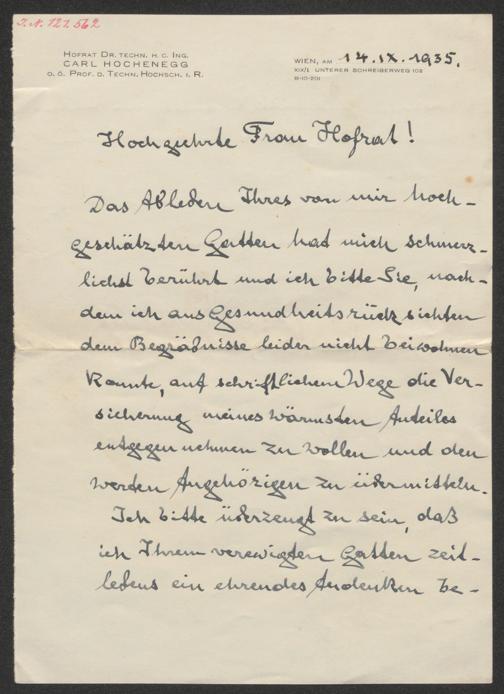 I.N. 127.562
HOFRAT DR. TECHN. H. C. ING.
CARL HOCHENEGG
O. Ö. PROF. D. TECHN. HOCHSCH. I. R.
WIEN, AM 14.IX.1935.
XIX/1. UNTERER SCHREIBERWEG 102
B-10-201
Hochgeehrte Frau Hofrat!
Das Ableben Ihres von mir hoch-
geschätzten Gatten hat mich schmerz-
lichst berührt und ich bitte Sie, nach-
dem ich aus Gesundheitsrücksichten
dem Begräbnisse leider nicht beiwohnen
konnte, auf schriftlichem Wege die Ver-
sicherung meines wärmsten Anteiles
entgegennehmen zu wollen und den
werden Angehörigen zu übermitteln.
Ich bitte überzeugt zu sein, daß
ich Ihrem verewigten Gatten zeit-
lebens ein ehrendes Andenken be-